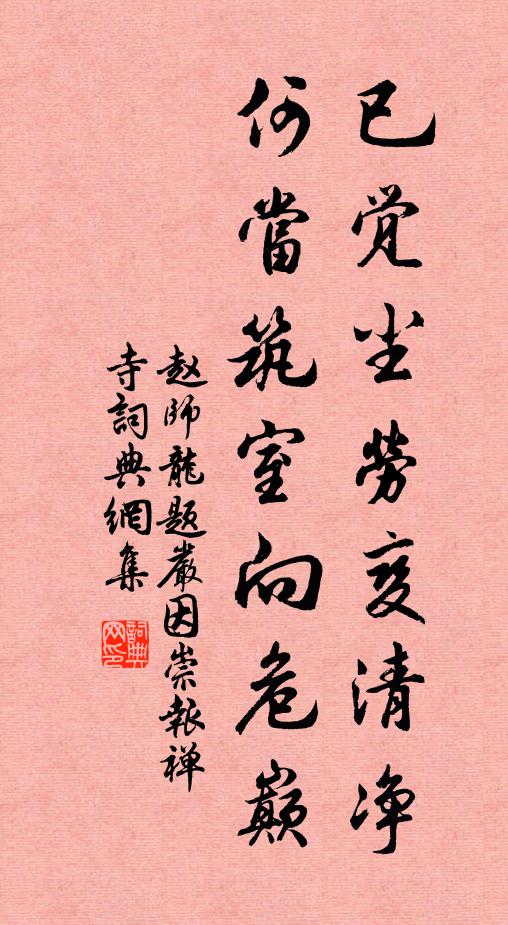 已觉尘劳变清净
何當筑室向危巅
赵師龍题嚴因崇報禅
寺詞典網集
詞典网印